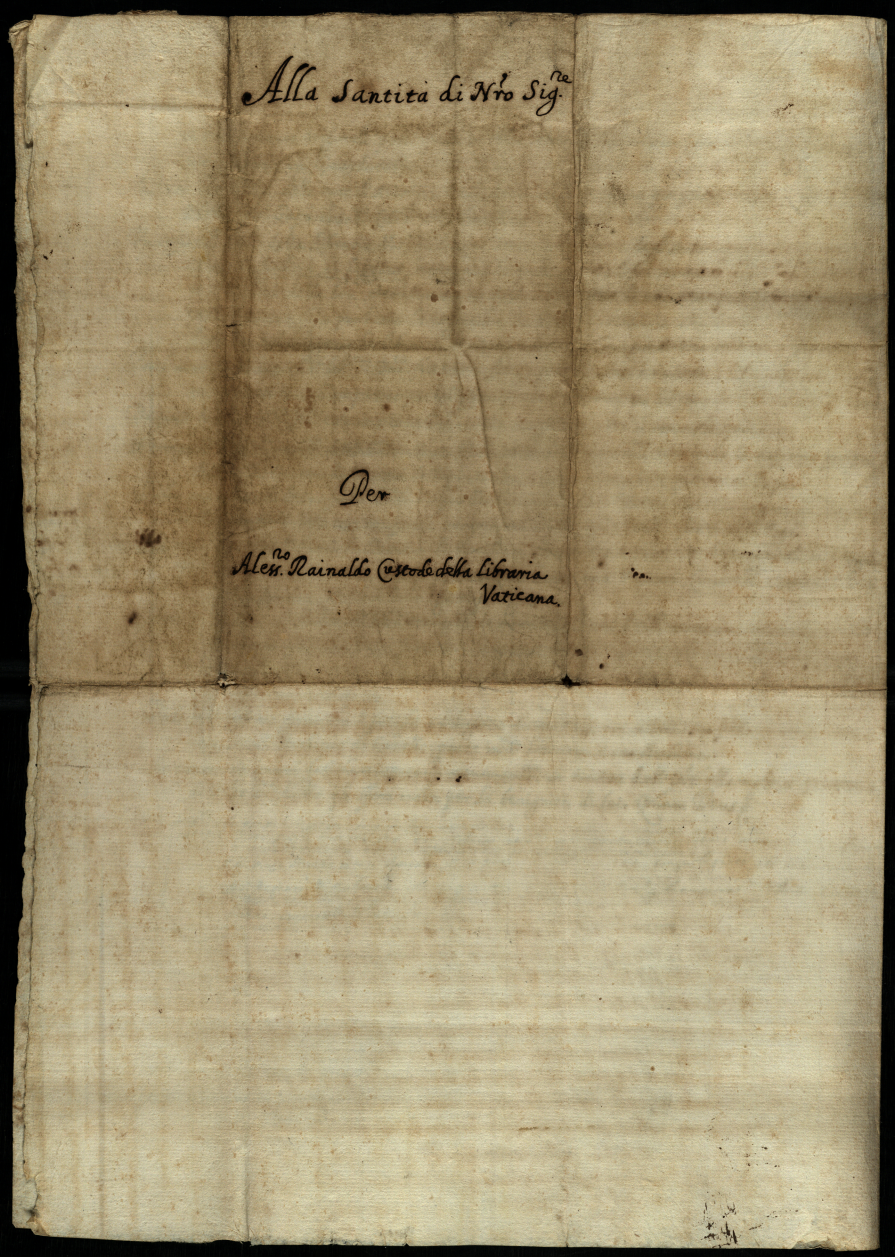 Alla Santità di Nr̃o Sig.re
Per
Aless.ro Rainaldo Custode della libraria
Vaticana.